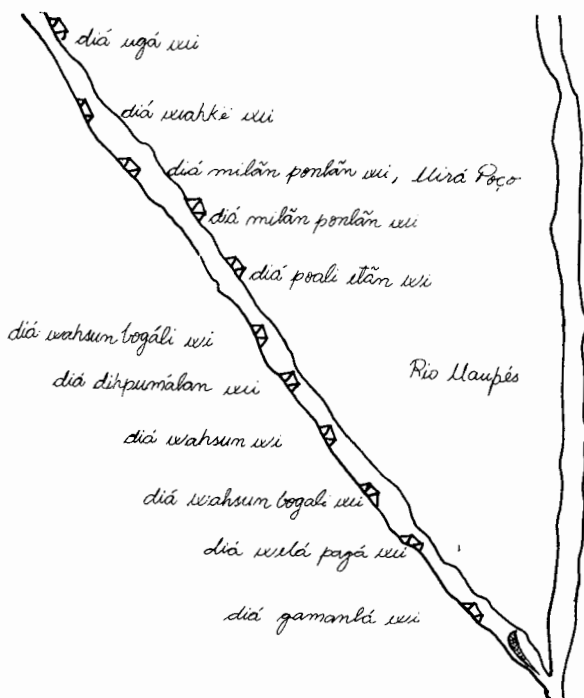 diá ugá wi
diá wahkë wi
diá milãn ponlãn wi, Mirá Poço
diá milãn ponlãn wi
diá poali etãn wi
diá wahsun bogáli wi
diá dihpumálan wi
Rio Uaupés
diá wahsun wi
diá wahsun bogali wi
diá welá pagá wi
diá gamanlá wi